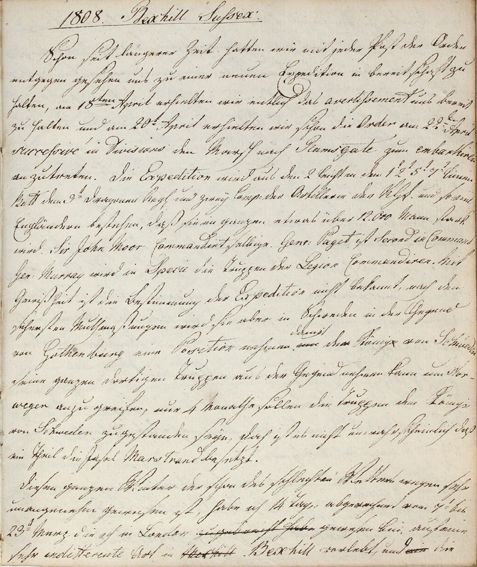 1808. Bexhill Sussex.
Schon seit längerer Zeit hatten wir mit jeder Post der Order
entgegen gesehen uns zu einer neuen Expedition in bereitschaft zu
halten, am 18ten April erhielten wir endlich das avertissement uns bereit
zu halten und am 20t April erhielten wir schon die Order am 22t
successive in Divisions den Marsch nach Ramsgate zum embarkiren
anzutreten. Die Expedition wird aus den 2 leichten den 1 2 5 7 Linien
Batt dem 3t Dragoner Regt und zwey Comp: der Artillerie der KGL. und
Engländern bestehen, daß sie im ganzen etwas über 12.000 Mann stark
wird. Sir John Moor Commandirt selbige. Genr. Paget ist Second in Command
Gen Murray wird in Specie die Truppen der Legion Commandiren. Mit
Gewißheit ist die Bestimmung der Expedition nicht bekannt, nach den
sichersten Muthmaßungen wird sie aber in Schweden in der Gegend
von Gothenburg eine Position nehmen damit der König von Schweden
seine ganzen dortigen Truppen aus der Gegend nehmen kann um Nor-
wegen anzugreifen, nur 4 Monathe sollen die Truppen dem Könige
von Schweden zugestanden seyn, doch ist es nicht unwahrscheinlich daß
ein Theil die Insel Marstrand besetzt.
Diesen ganzen Winter der schon des schlechten Wetters wegen sehr
unangenehm gewesen ist, habe ich 14 Tage abgerechnet vom 9 bis
23t März die ich in London zugebracht habe gewesen bin, an
sehr indifferente Art in Bexhill verlebt, und die